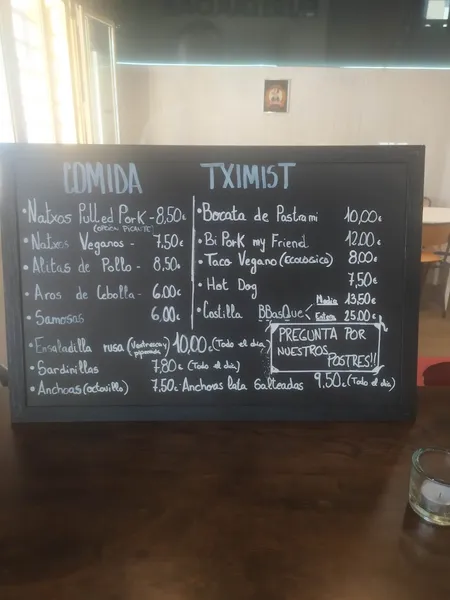 COMIDA TXIMIST
• Natxos Pulled Pork - 8,50€
(OPCIÓN PICANTE)
• Natxos Veganos - 7,50€
• Alitas de Pollo - 8,50€
• Aros de Cebolla - 6.00€
• Samosas 6.00€
• Bocata de Pastrami 10,00€
• Bi Pork my Friend 12.00€
• Taco Vegano (ECOLÓGICO) 8,00€
• Hot Dog 7,50€
• Costilla BBasQue < Media 13,50€
Entera 25.00€
• Ensaladilla rusa (Ventresca y piparrada) 10,00€ (Todo el día)
• Sardinillas 7,80€ (Todo el día)
• Anchoas (octavillo) 7.50€ · Anchoas lata Salteadas 9,50€ (Todo el día)
PREGUNTA POR
NUESTROS
POSTRES!!